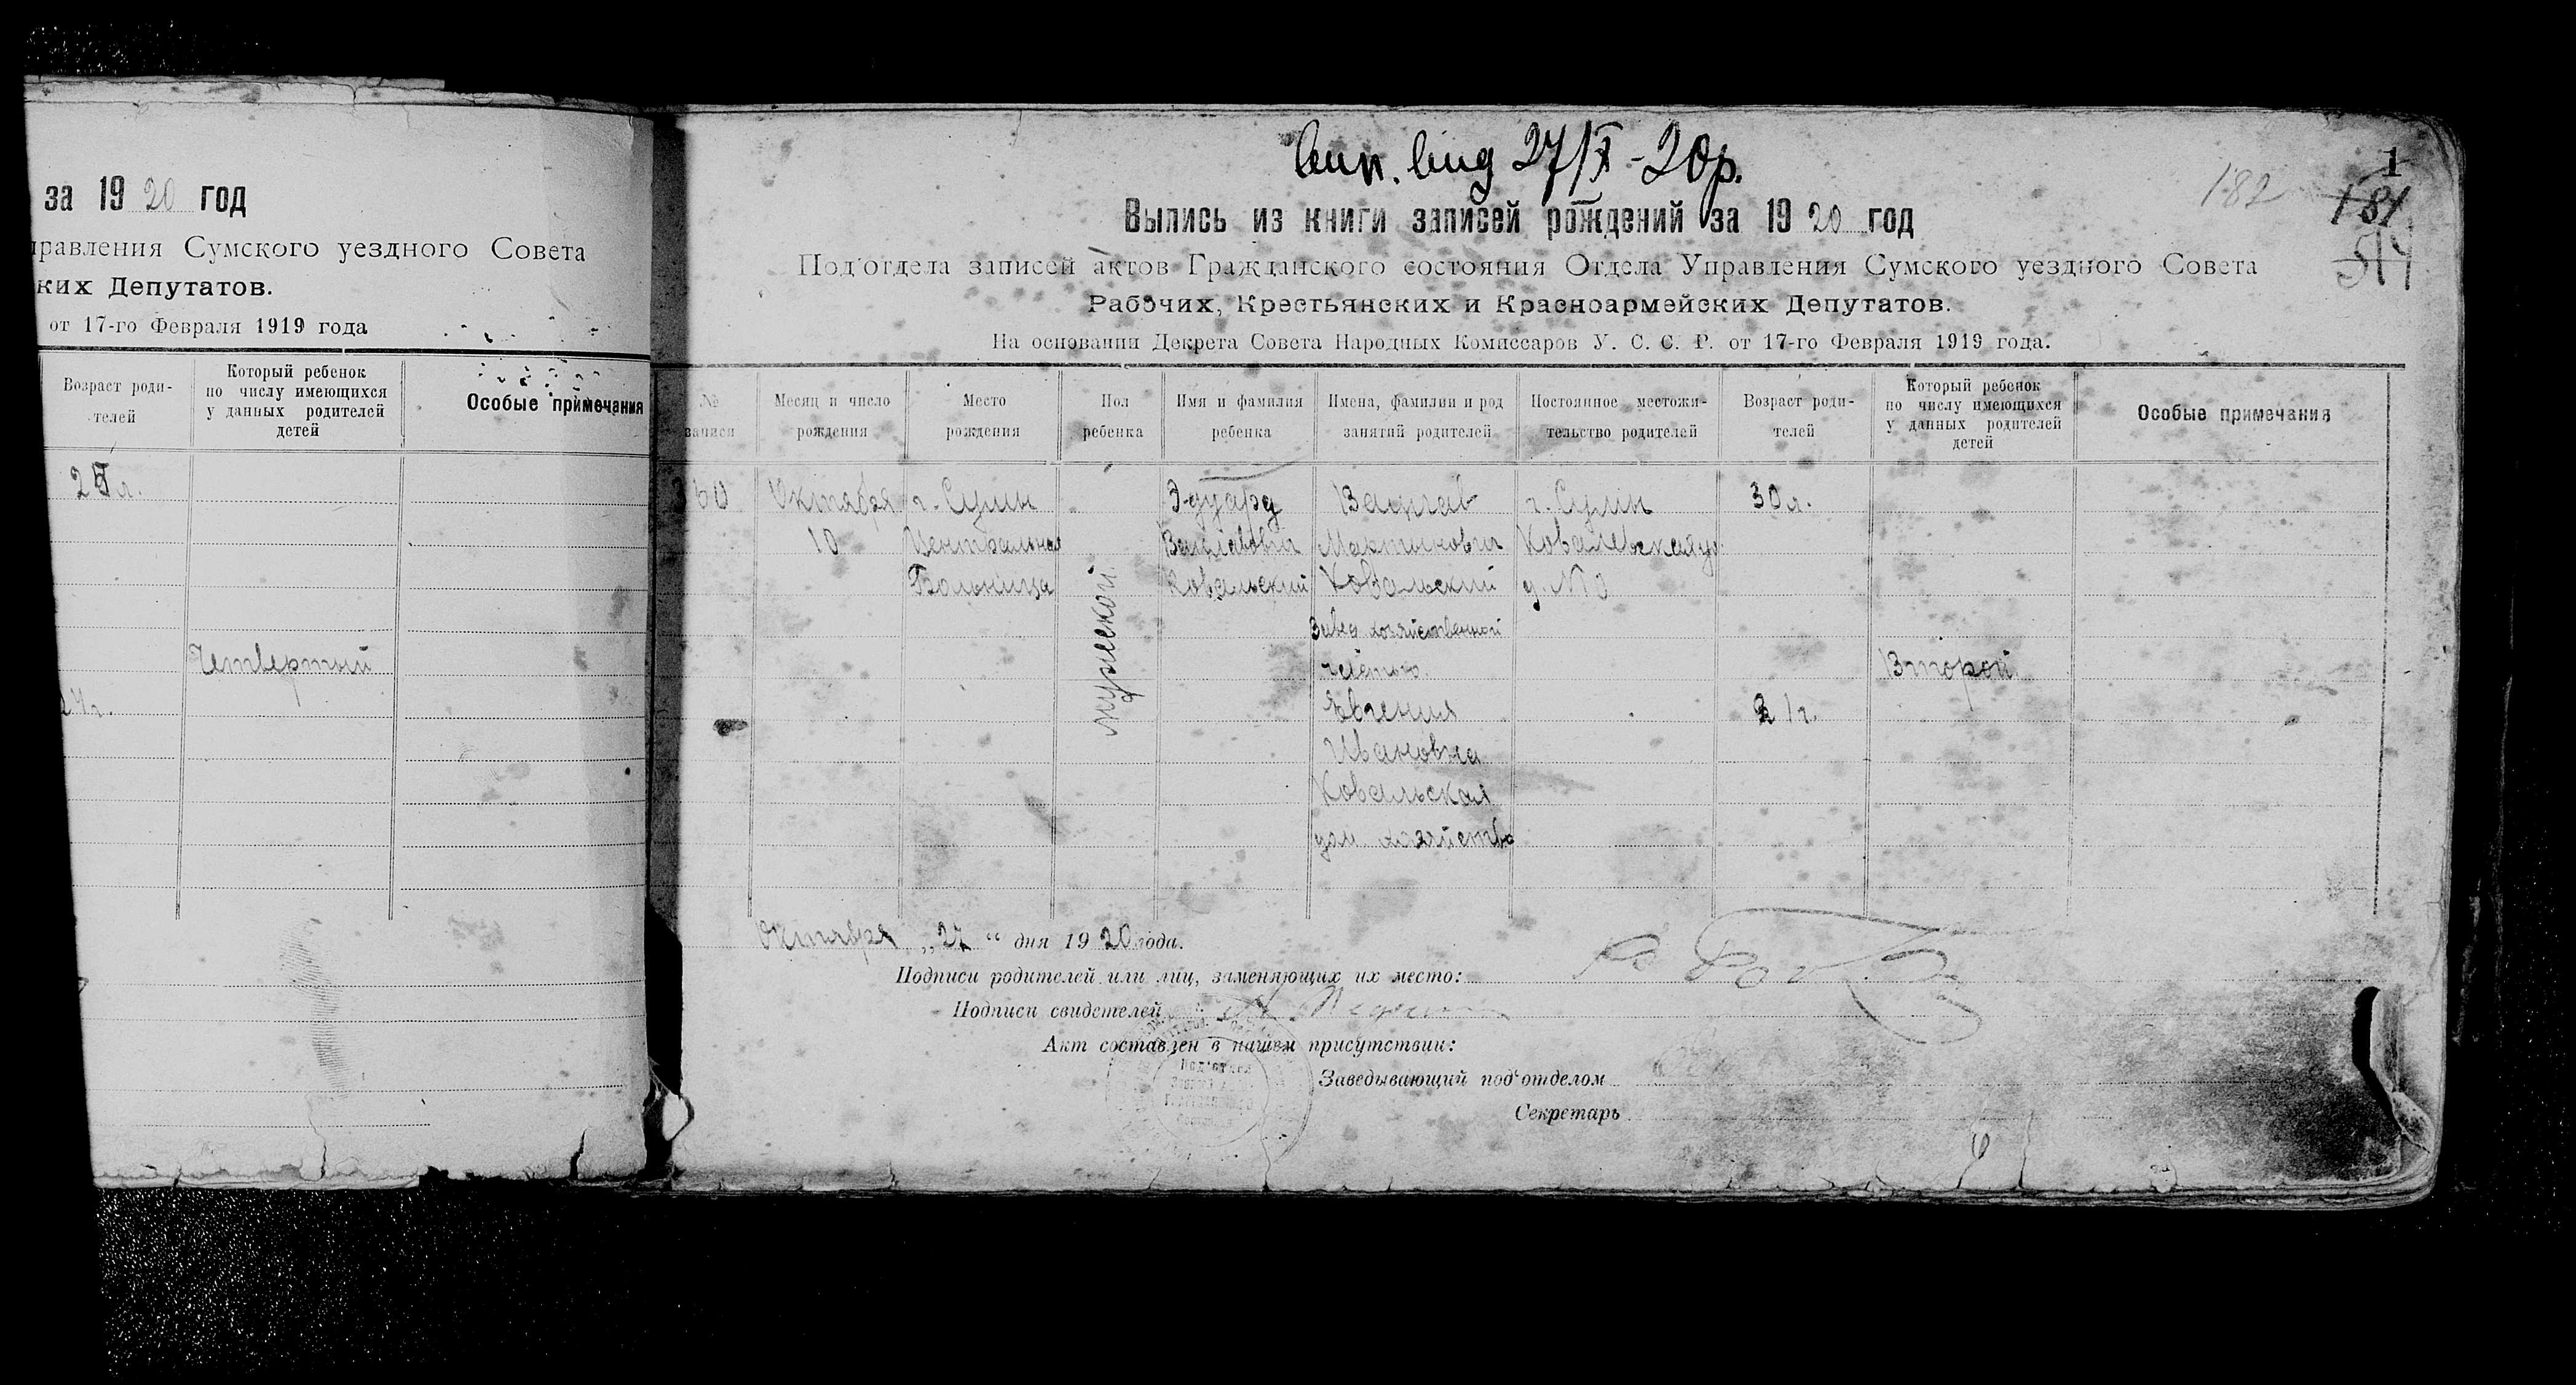 за 1920 год
правления Сумского уездного Совета
ких Депутатов.
от 17-го Февраля 1919 года
Возраст роди-
телей
Который ребенок
по числу имеющихся
у данных родителей
детей
Особые примечания
Четвертый
вип. вид 27/X-20р.
182
1
181
Выпись из книги записей рождений за 1920 год
Под'отдела записей актов Гражданского состояния Отдела Управления Сумского уездного Совета
Рабочих, Крестьянских и Красноармейских Депутатов.
На основании Декрета Совета Народных Комиссаров У. С. С. Р. от 17-го Февраля 1919 года.
№
записи
Месяц и число
рождения
Место
рождения
Пол
ребенка
Имя и фамилия
ребенка
Имена, фамилии и род
занятий родителей
Постоянное местожи-
тельство родителей
Возраст роди-
телей
Который ребенок
по числу имеющихся
у данных родителей
детей
Особые примечания
60
Октября
10
г. Сумы
Центральная
Больница
мужеской
Эдуард
Вацлавович
Ковальский
Вацлав
Мартынович
Ковальский
Завед хозяйственной
частью
Евгения
Ивановна
Ковальская
дом хозяйство
г. Сумы
Ковалевская ул
д. №
30 л.
21 г.
Второй
Октября „27“ дня 1920 года.
Подписи родителей или лиц, заменяющих их место:
Подписи свидетелей
Акт составлен в нашем присутствии:
Заведывающий под'отделом
Секретарь